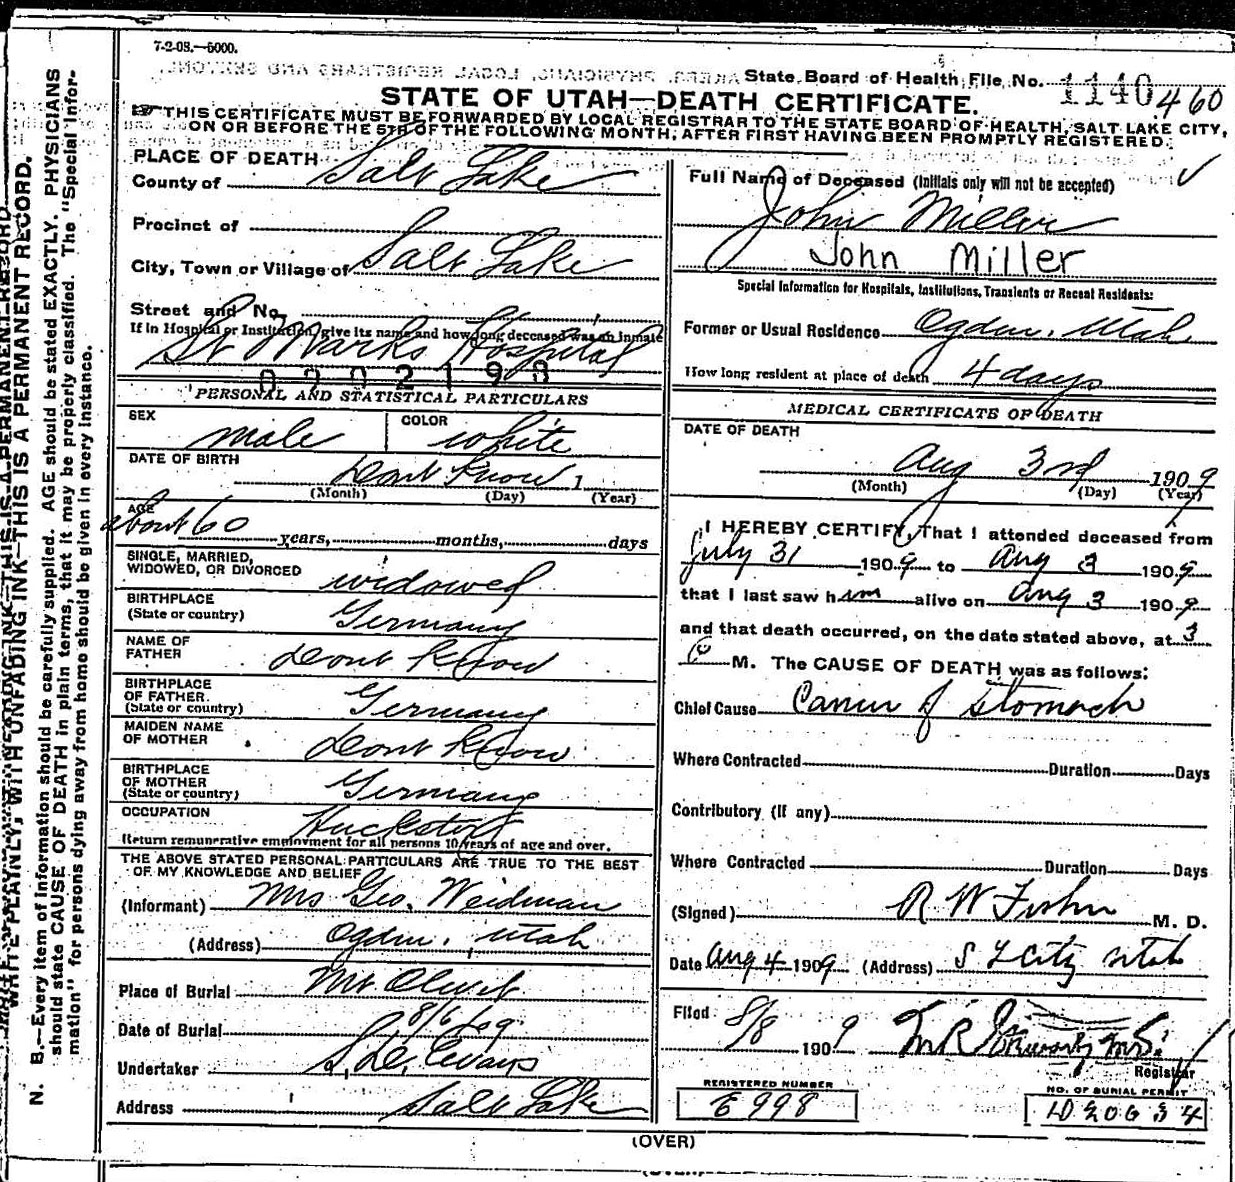 7-2-08.—5000.
State Board of Health File No. 1140 460
STATE OF UTAH—DEATH CERTIFICATE.
THIS CERTIFICATE MUST BE FORWARDED BY LOCAL REGISTRAR TO THE STATE BOARD OF HEALTH, SALT LAKE CITY,
ON OR BEFORE THE 5TH OF THE FOLLOWING MONTH, AFTER FIRST HAVING BEEN PROMPTLY REGISTERED.
PLACE OF DEATH
County of Salt Lake
Precinct of
City, Town or Village of Salt Lake
Street and No.
If in Hospital or Institution, give its name and how long deceased was an inmate
St Marks Hospital
0202198
PERSONAL AND STATISTICAL PARTICULARS
SEX male
COLOR white
DATE OF BIRTH Dont Know 1
(Month) (Day) (Year)
AGE
about 60 years, months, days
SINGLE, MARRIED,
WIDOWED, OR DIVORCED widowed
BIRTHPLACE
(State or country) Germany
NAME OF
FATHER Dont Know
BIRTHPLACE
OF FATHER
(State or country) Germany
MAIDEN NAME
OF MOTHER Dont Know
BIRTHPLACE
OF MOTHER
(State or country) Germany
OCCUPATION Huckster
Return remunerative employment for all persons 10 years of age and over.
THE ABOVE STATED PERSONAL PARTICULARS ARE TRUE TO THE BEST
OF MY KNOWLEDGE AND BELIEF
(Informant) Mrs Geo. Weidman
(Address) Ogden, Utah
Place of Burial Mt Olivet
Date of Burial 8/6/09
Undertaker S. D. Evans
Address Salt Lake
Full Name of Deceased (Initials only will not be accepted)
John Miller
John Miller
Special Information for Hospitals, Institutions, Transients or Recent Residents:
Former or Usual Residence Ogden, Utah
How long resident at place of death 4 days
MEDICAL CERTIFICATE OF DEATH
DATE OF DEATH
Aug 3rd 1909
(Month) (Day) (Year)
I HEREBY CERTIFY, That I attended deceased from
July 31 1909 to Aug 3 1909
that I last saw him alive on Aug 3 1909
and that death occurred, on the date stated above, at 3
P M. The CAUSE OF DEATH was as follows:
Chief Cause Cancer of Stomach
Where Contracted Duration Days
Contributory (if any)
Where Contracted Duration Days
(Signed) R W Fisher M. D.
Date Aug 4 1909 (Address) S L City Utah
Filed 8/8 1909
Registrar
REGISTERED NUMBER
E 998
NO. OF BURIAL PERMIT
(OVER)
N. B.—Every item of information should be carefully supplied. AGE should be stated EXACTLY. PHYSICIANS
should state CAUSE OF DEATH in plain terms, that it may be properly classified. The "Special Infor-
mation" for persons dying away from home should be given in every instance.
WRITE PLAINLY, WITH UNFADING INK—THIS IS A PERMANENT RECORD.